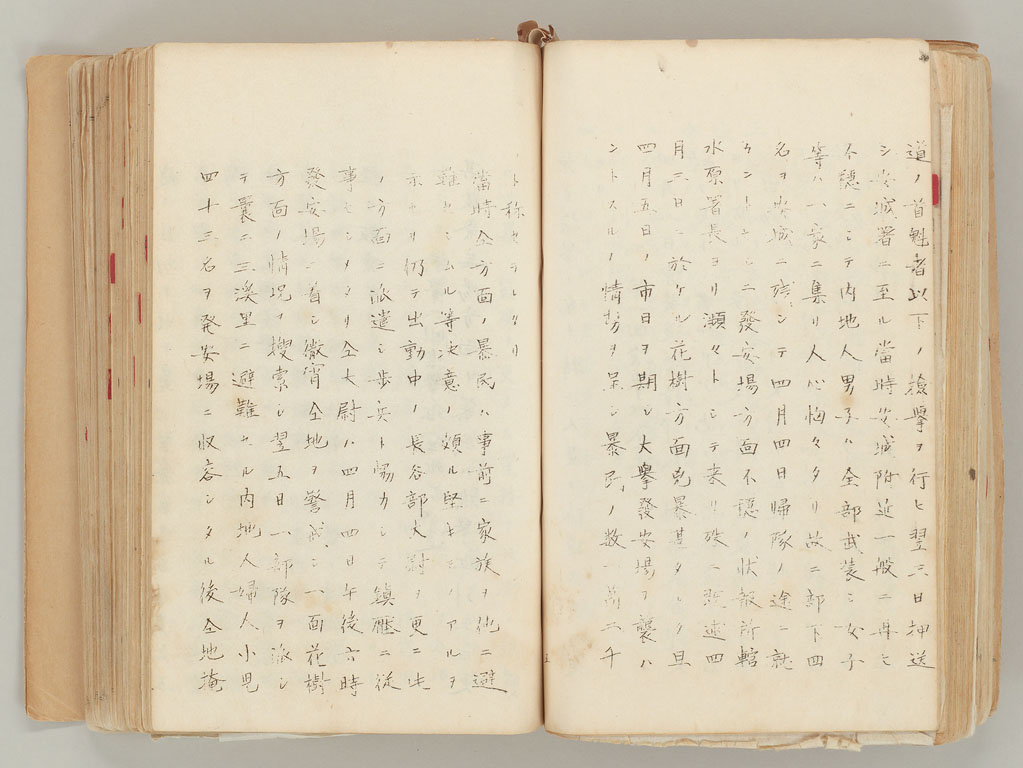 道ノ首魁者以下ノ検擧ヲ行ヒ翌三日押送
シ安城署ニ至ル當時安城附近一般ニ
不穏ニシテ内地人男子ハ全部武装シ女子
等ハ一家ニ集リ人心恟々タリ故ニ部下四
名ヲ安城ニ残シテ四月四日歸隊ノ途ニ就
カントセシニ發安場方面不穏ノ状報所轄
水原署長ヨリ瀕々トシテ来リ殊ニ四
月三日ニ於ケル花樹方面兇暴甚タシク且
四月五日ノ市日ヲ期シ大擧發安場ヲ襲ハ
ントスルノ情勢ヲ呈シ暴民ノ数一萬二千
ト称セラレタリ
當時仝方面ノ暴民ハ事前ニ家族ヲ他ニ避
難セシムル等決意ノ頗ル堅キモノアルヲ
示セリ仍テ出動中ノ長谷部大尉ヲ更ニ此
ノ方面ニ派遣シ歩兵ト協力シテ鎮壓ニ従
事セシメタリ仝大尉ハ四月四日午後六時
發安場ニ着シ徹宵仝地ヲ警戒シ一面花樹
方面ノ情況ヲ捜索シ翌五日一部隊ヲ派シ
テ曩ニ三溪里ニ避難セル内地人婦人小児
四十三名ヲ発安場ニ収容シタル後仝地掩